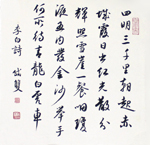 四明三千里朝起赤
城霞日出红光散分
輝照雪崖一餐咽瓊
液五内發金沙舉手
何所待青龍白虎車
李白詩